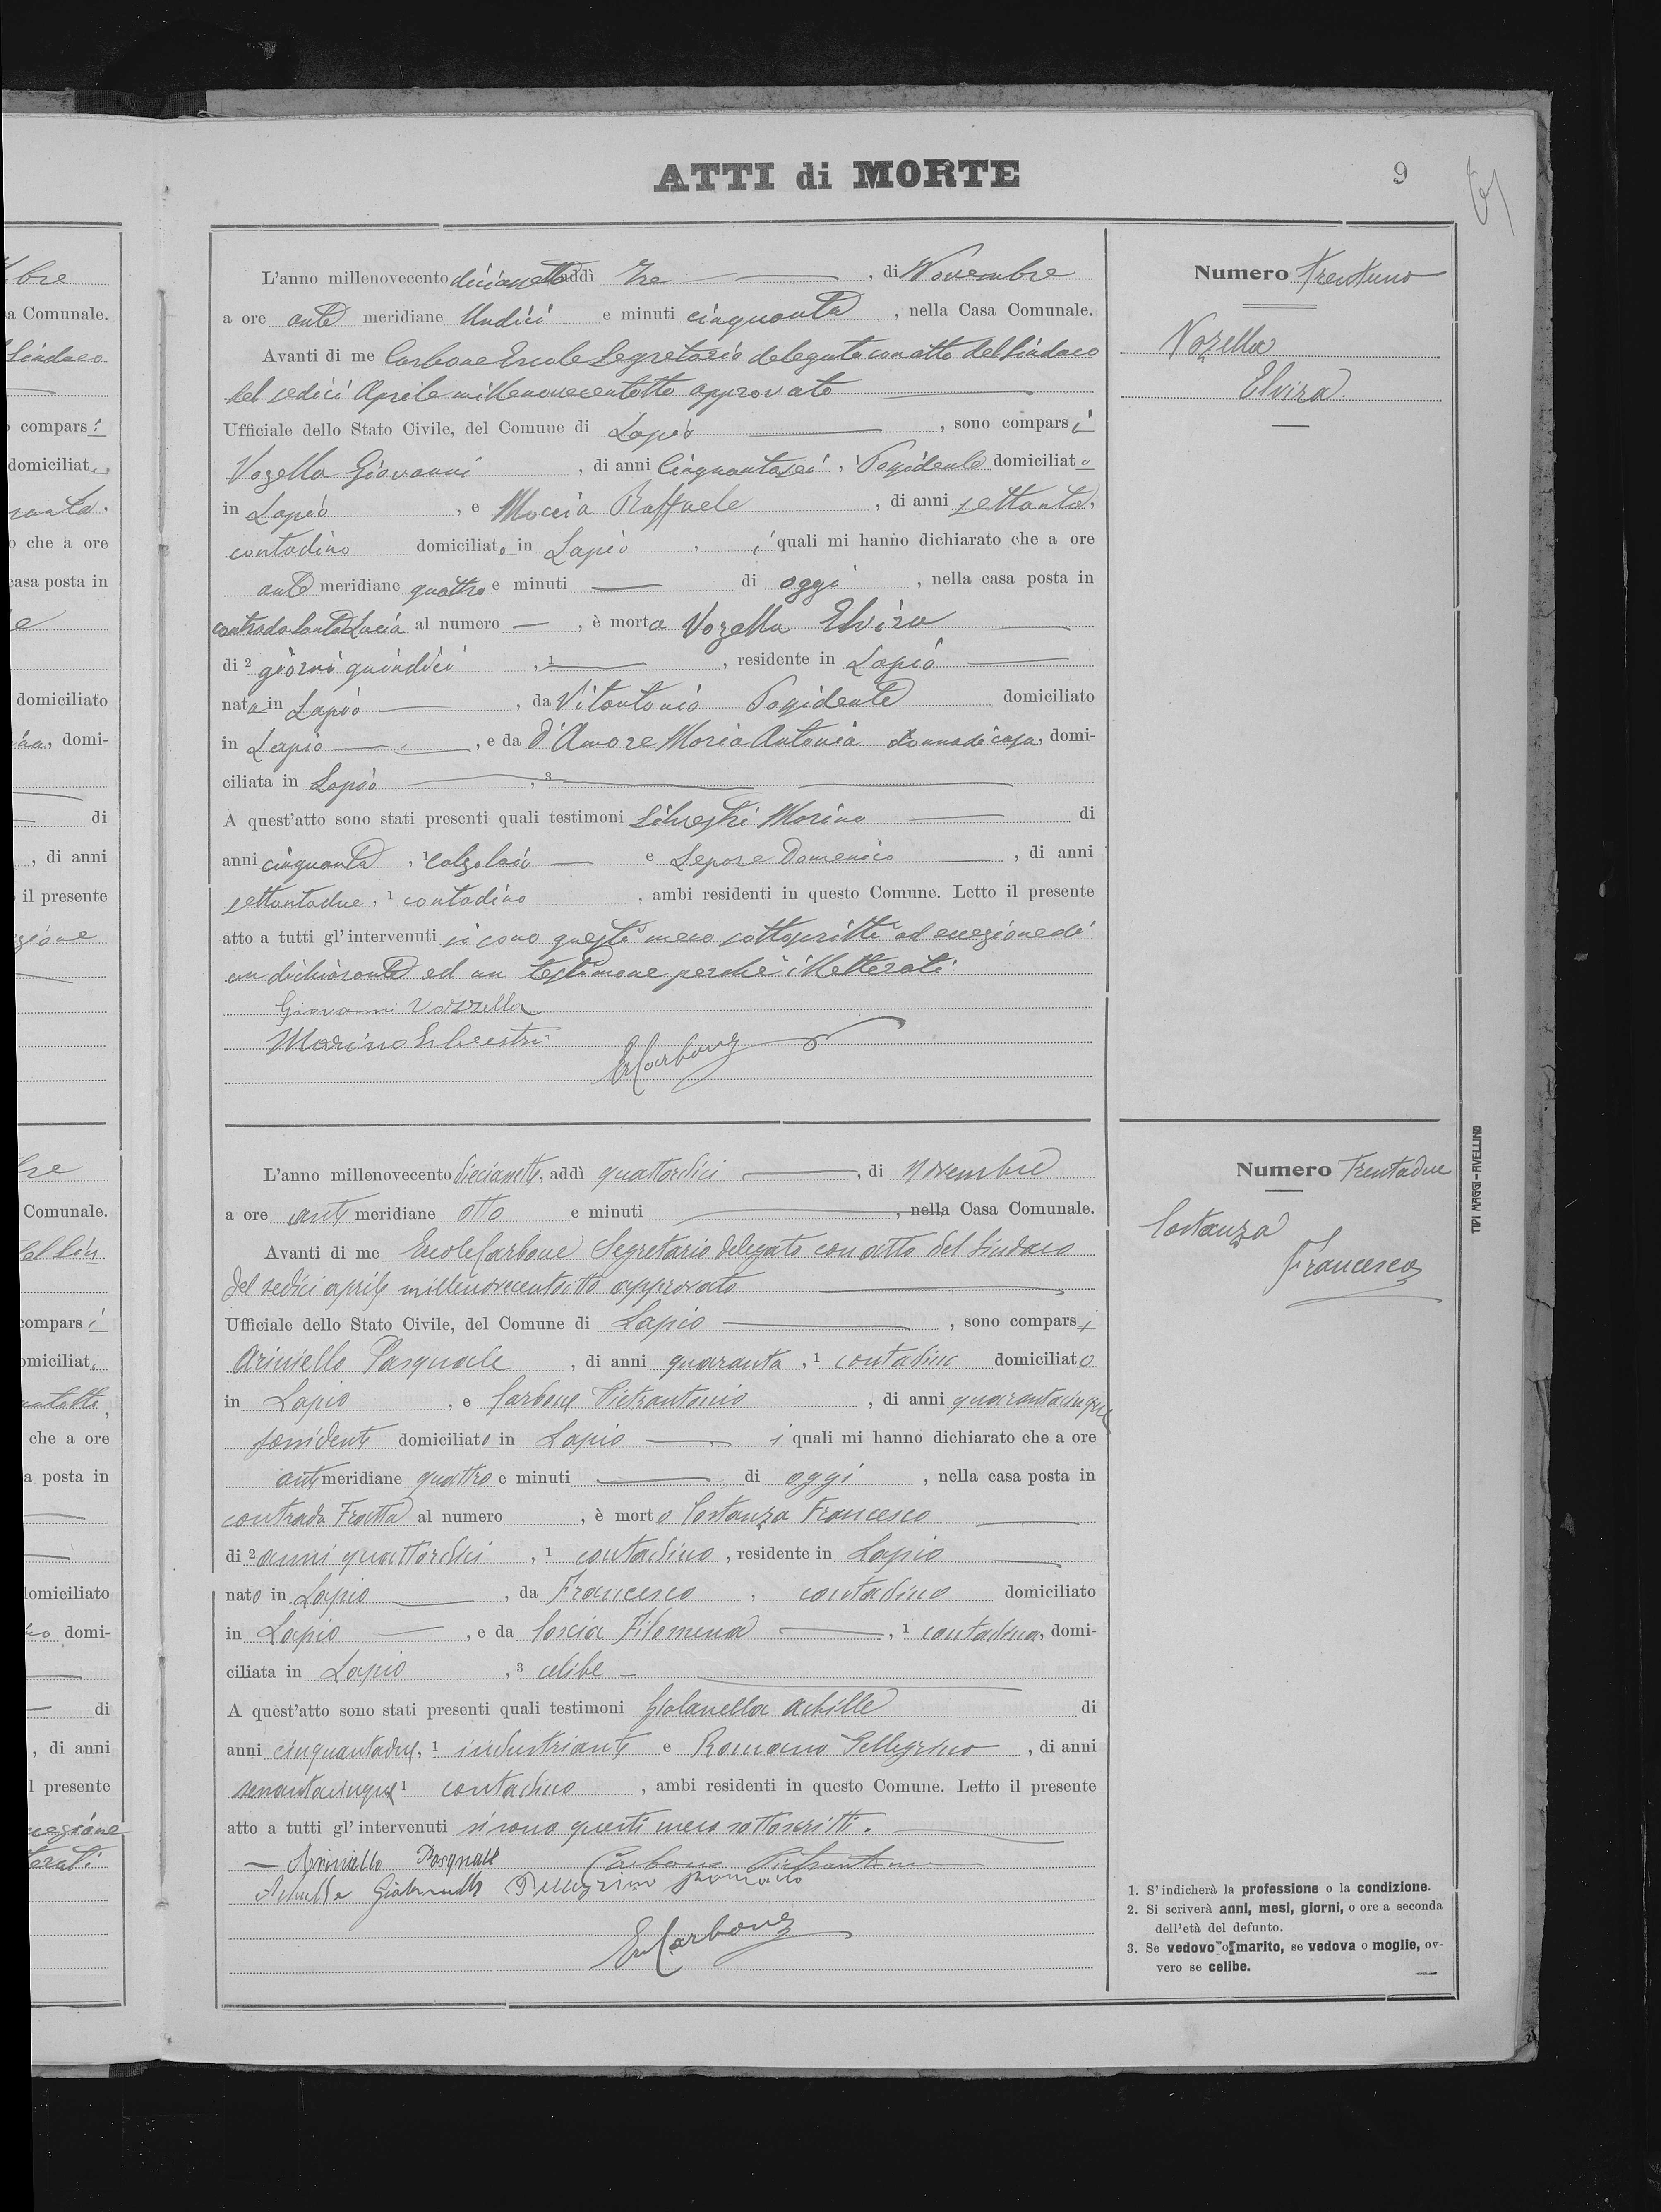 ATTI di MORTE
9
L'anno millenovecento diciasette addì Tre, di Novembre
a ore ante meridiane Undici e minuti cinquanta, nella Casa Comunale.
Avanti di me Carbone Ercole Segretario delegato con atto del Sindaco
del sedici Aprile millenovecentotto approvato
Ufficiale dello Stato Civile, del Comune di Lapio, sono comparsi
Vozella Giovanni, di anni Cinquantasei, 1 Possidente domiciliato
in Lapio, e Moccia Raffaele, di anni settanta,
contadino domiciliato in Lapio, i quali mi hanno dichiarato che a ore
ante meridiane quattro e minuti — di oggi, nella casa posta in
contrada Santa Lucia al numero —, è morta Vozella Elvira
di 2 giorni quindici, 1 —, residente in Lapio
nata in Lapio, da Vitantonio Possidente domiciliato
in Lapio, e da D'Amore Maria Antonia donna di casa, domi-
ciliata in Lapio, 3
A quest'atto sono stati presenti quali testimoni Silvestri Marino di
anni cinquanta, 1 calzolaio e Lepore Domenico, di anni
settantadue, 1 contadino, ambi residenti in questo Comune. Letto il presente
atto a tutti gl'intervenuti si sono questi meco sottoscritti ad eccezione di
un dichiarante ed un testimone perchè illetterati.
Giovanni Vozzella
Marino Silvestri
E Carbone
Numero Trentuno
Vozella
Elvira.
L'anno millenovecento diecianette, addì quattordici, di Novembre
a ore ant meridiane otto e minuti —, nella Casa Comunale.
Avanti di me Ercole Carbone Segretario delegato con atto del Sindaco
del sedici aprile millenovecentootto approvato
Ufficiale dello Stato Civile, del Comune di Lapio, sono comparsi
Ariniello Pasquale, di anni quaranta, 1 contadino domiciliato
in Lapio, e Carbone Pietrantonio, di anni quarantacinque
possidente domiciliato in Lapio i quali mi hanno dichiarato che a ore
ante meridiane quattro e minuti — di oggi, nella casa posta in
contrada Fratta al numero, è morto Costanza Francesco
di 2 anni quattordici, 1 contadino, residente in Lapio
nato in Lapio, da Francesco, contadino domiciliato
in Lapio, e da Coscia Filomena, 1 contadina, domi-
ciliata in Lapio, 3 celibe
A quest'atto sono stati presenti quali testimoni Giolanella Achille di
anni cinquantadue, 1 industriante e Romano Pellegrino, di anni
sessantacinque 1 contadino, ambi residenti in questo Comune. Letto il presente
atto a tutti gl'intervenuti si sono questi meco sottoscritti.
Ariniello Pasquale Carbone Pietrantonio
Achille Pellegrino Romano
E Carbone
Numero Trentadue
Costanza
Francesco
1. S'indicherà la professione o la condizione.
2. Si scriverà anni, mesi, giorni, o ore a seconda
dell'età del defunto.
3. Se vedovo o marito, se vedova o moglie, ov-
vero se celibe.
TIPI MAGGI-AVELLINO